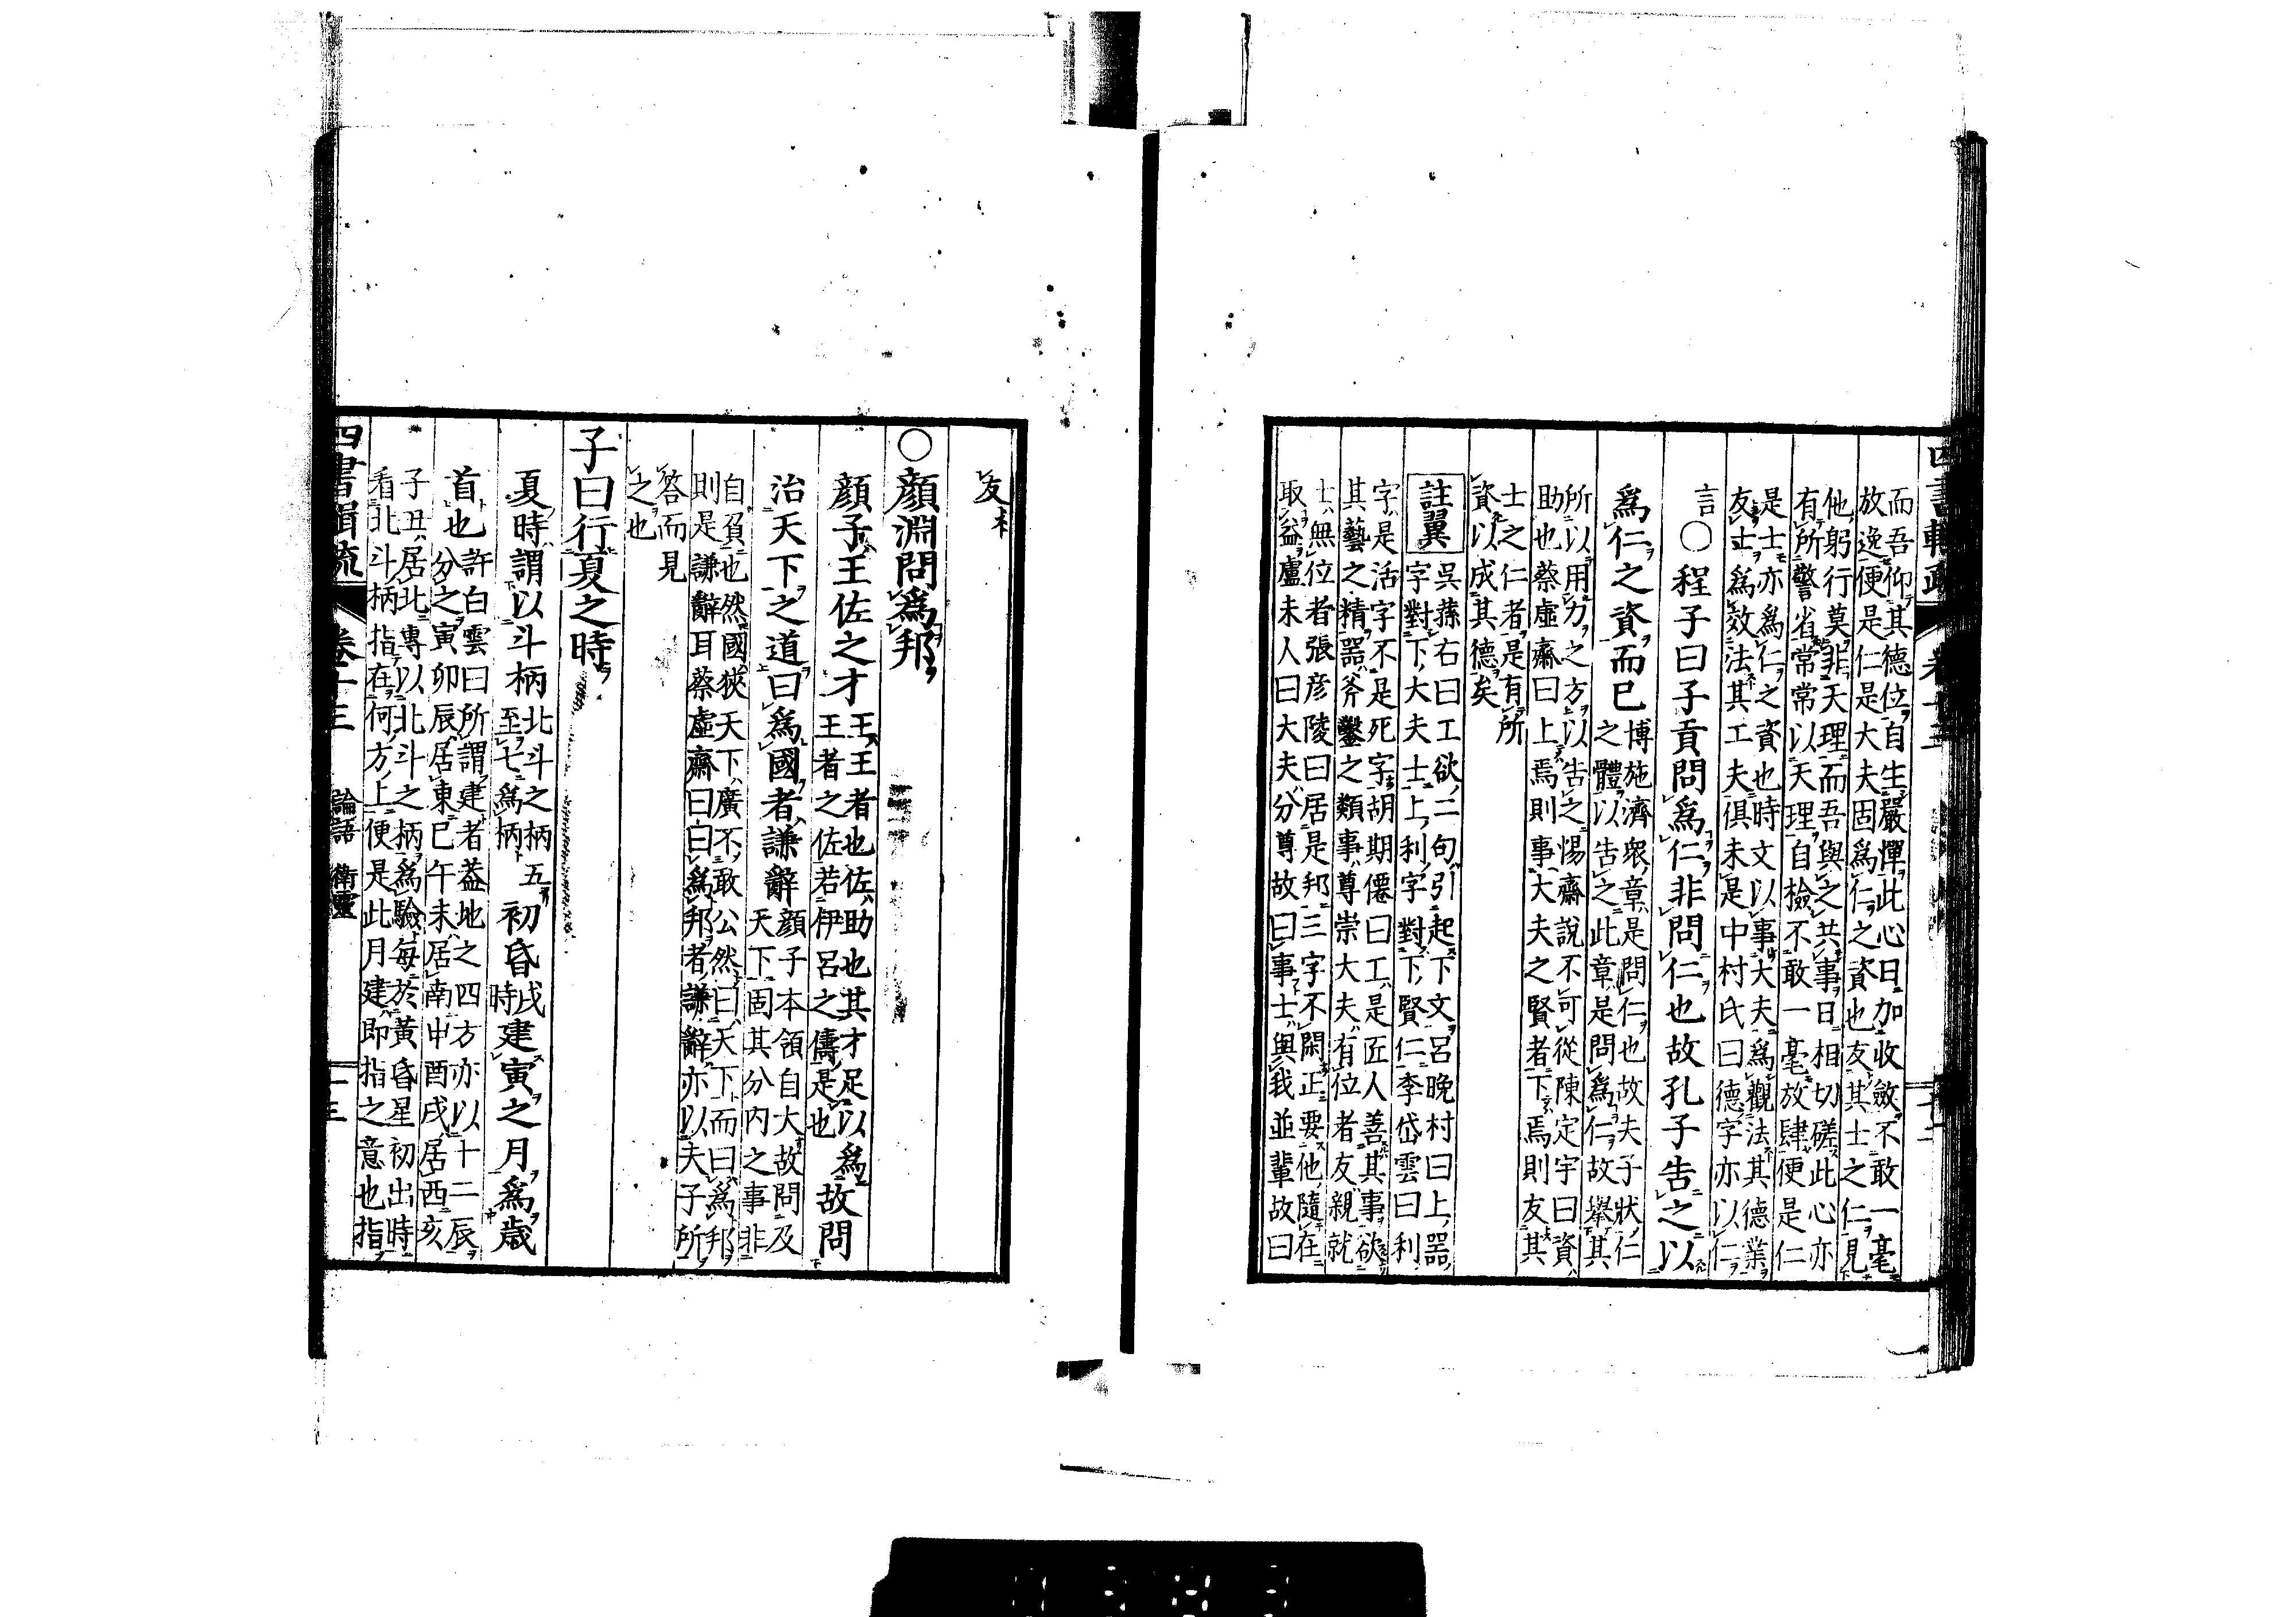 四書輯疏 卷十三
而吾仰其德位自生嚴憚此心日加收斂不敢一毫
放逸便是仁是大夫固爲仁之資也友其士之仁見
他躬行莫非天理而吾與之共事日相切磋此心亦
有所警省常常以天理自檢不敢一毫放肆便是仁
是士亦爲仁之資也時文以事大夫爲觀法其德業
友士爲效法其工夫俱未是中村氏曰德字亦以仁
言〇程子曰子貢問爲仁非問仁也故孔子告之以
爲仁之資而已博施濟衆章是問仁也故夫子狀仁
之體以告之此章是問爲仁故擧其
所以用力之方以告之惕齋說不可從陳定宇曰資
助也蔡虛齋曰上焉則事大夫之賢者下焉則友其
士之仁者是有所
資以成其德矣
註翼 吳蓀右曰工欲二句引起下文呂晚村曰上器
字對下大夫士上利字對下賢仁李岱雲曰利
字是活字不是死字胡期僊曰工是匠人善其事欲
其藝之精器斧鑿之類事尊崇大夫有位者友親就
士無位者張彦陵曰居是邦三字不閑正要他隨在
取益盧未人曰大夫分尊故曰事士與我並輩故曰
友
〇顏淵問爲邦
顏子王佐之才王王者也佐助也其才足以爲
王者之佐若伊呂之儔是也故問
治天下之道曰爲國者謙辭顏子本領自大故問及
天下固其分內之事非
自負也然國狹天下廣不敢公然曰天下而曰爲邦
則是謙辭耳蔡虛齋曰曰爲邦者謙辭亦以夫子所
答而見
之也
子曰行夏之時
夏時謂以斗柄北斗之柄五
至七爲柄初昏戌
時建寅之月爲歲
首也許白雲曰所謂建者葢地之四方亦以十二辰
分之寅卯辰居東巳午未居南申酉戌居西亥
子丑居北專以北斗之柄爲驗每於黃昏星初出時
看北斗柄指在何方上便是此月建卽指之意也指
四書輯疏 卷十三 論語 衛靈 十三